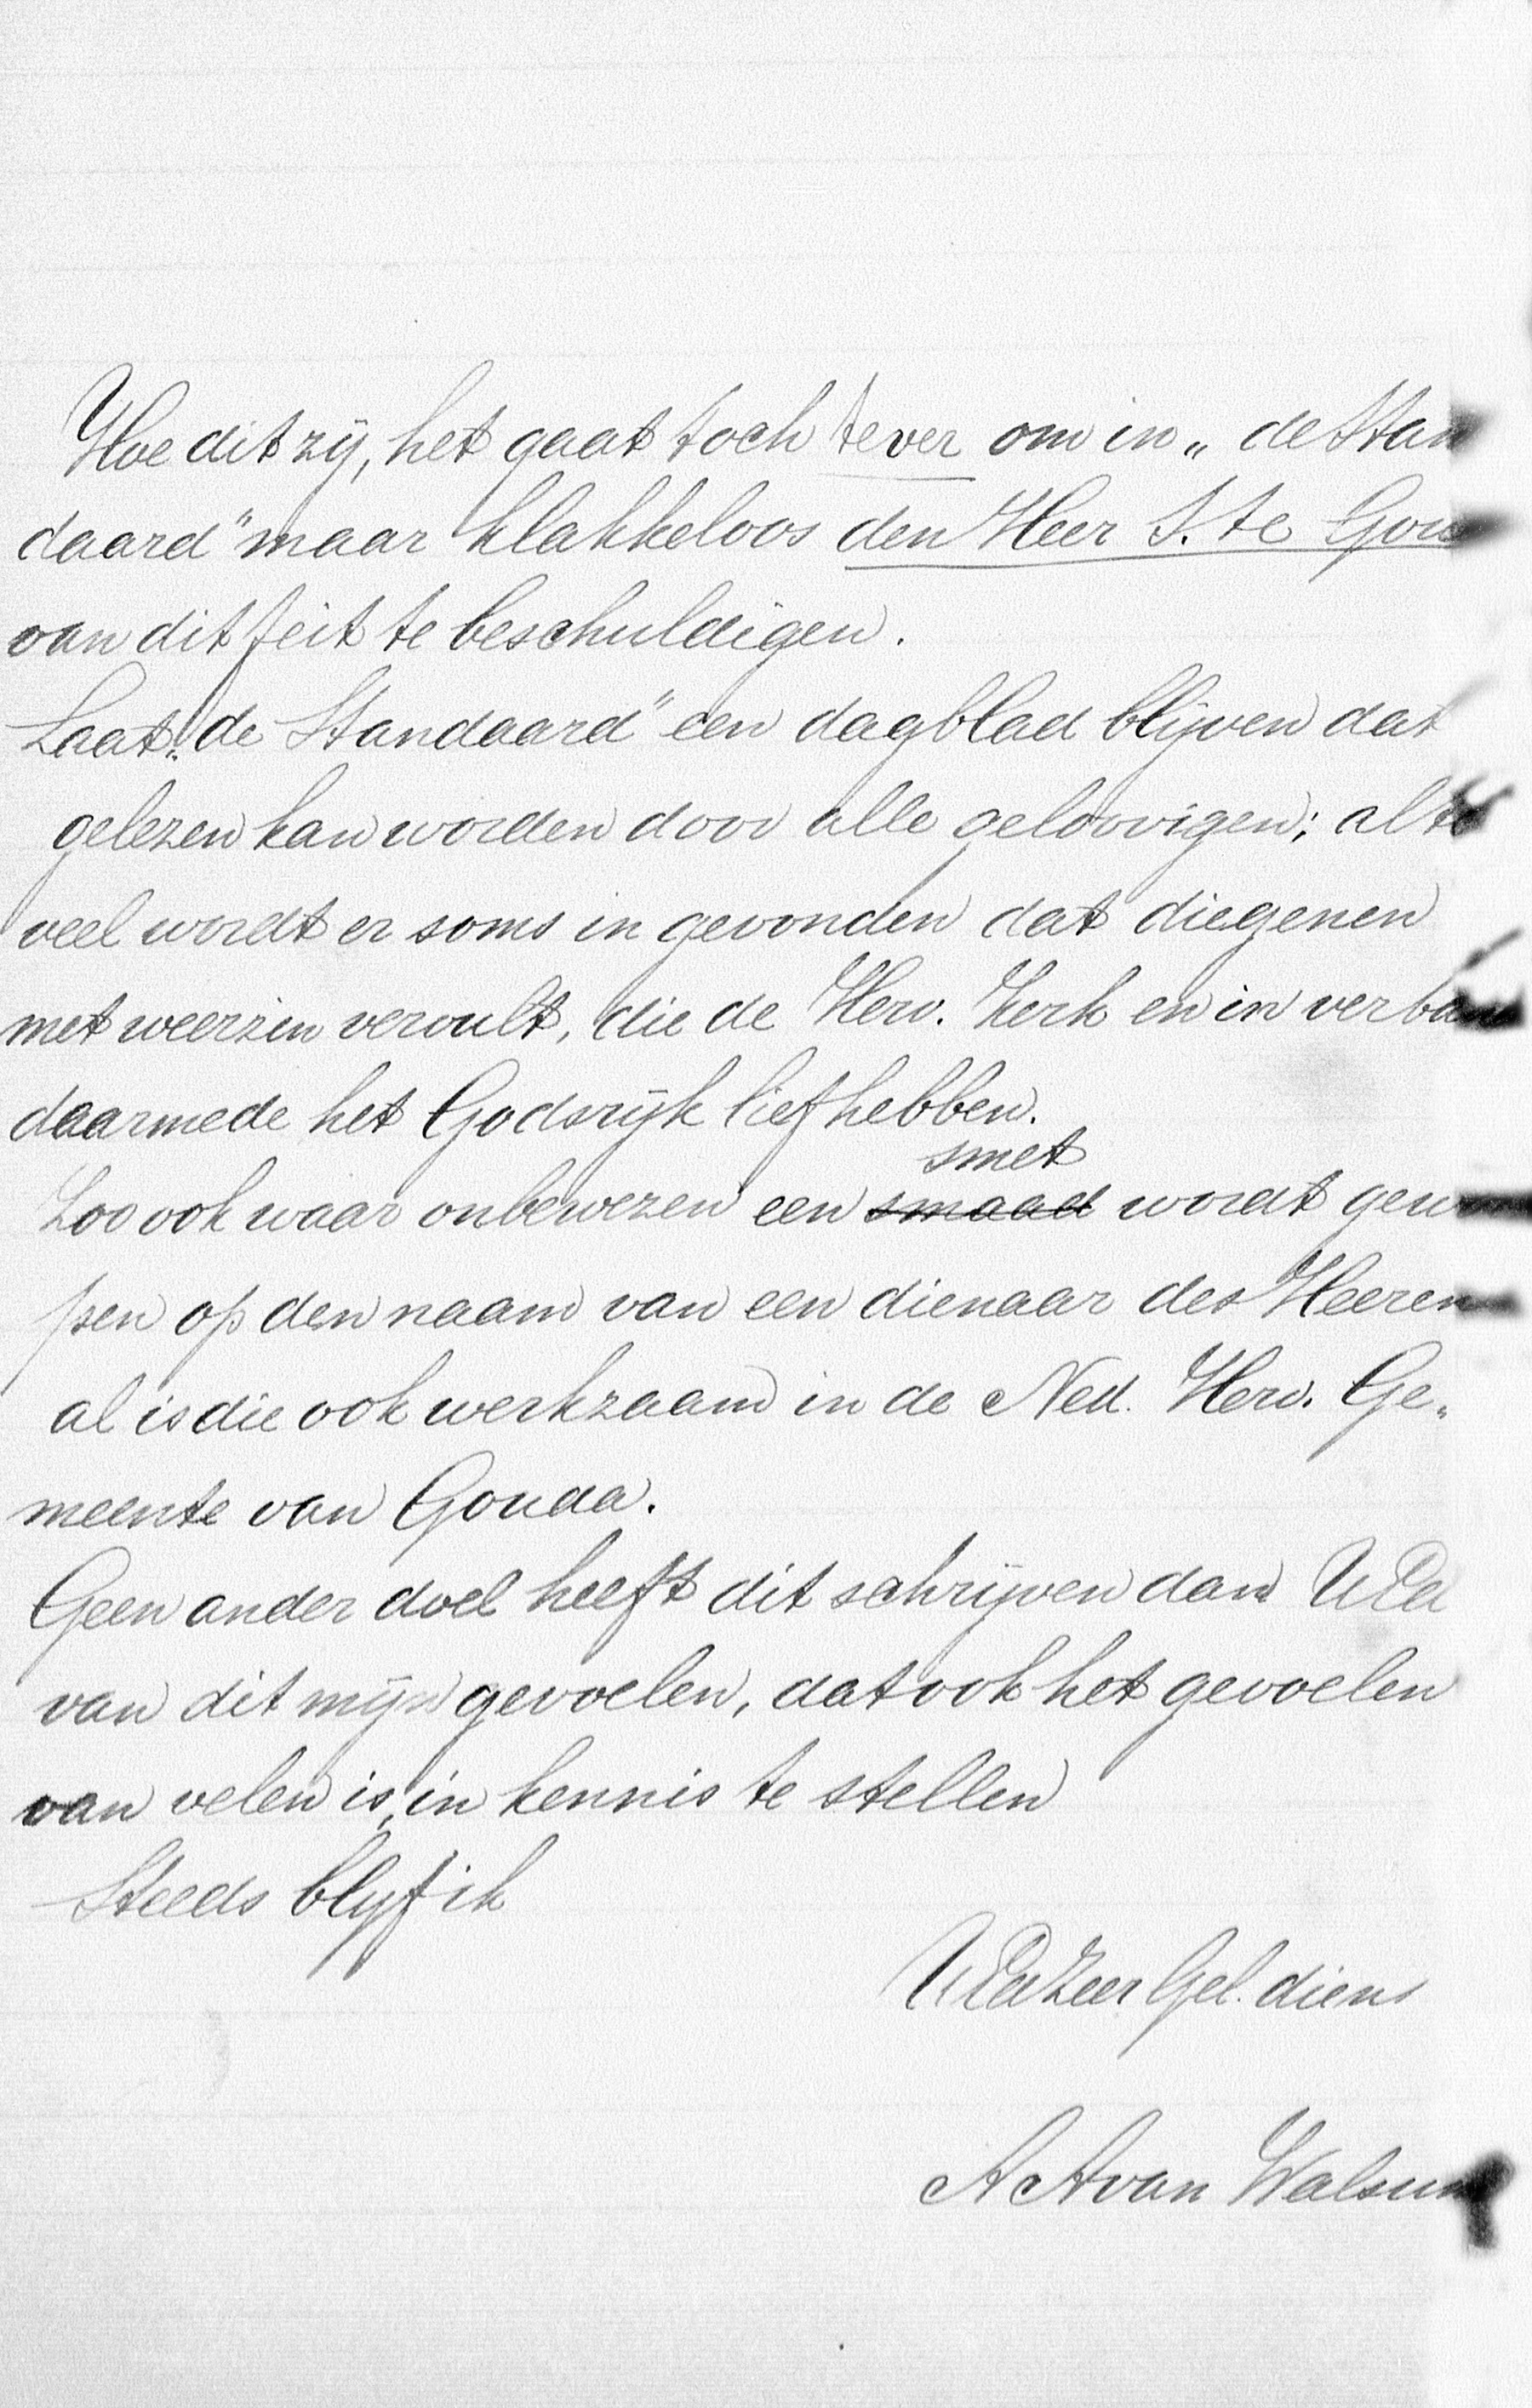 Hoe dit zij, het gaat toch te ver om in „de Stan
daard" maar klakkeloos den Heer S. te Gou
van dit feit te beschuldigen.
Laat „de Standaard" een dagblad blijven dat
gelezen kan worden door alle geloovigen; al te
veel wordt er soms in gevonden dat diegenen
met weerzin vervult, die de Herv. Kerk en in verban
daarmede het Godsrijk liefhebben.
smet
Zoo ook waar onbewezen een smaad wordt gew
pen op den naam van een dienaar des Heeren
al is die ook werkzaam in de Ned. Herv. Ge„
meente van Gouda.
Geen ander doel heeft dit schrijven dan UEd
van dit mijn gevoelen, dat ook het gevoelen
van velen is, in kennis te stellen
Steeds blijf ik
UEdZeer Gel. diens
A A van Walsum